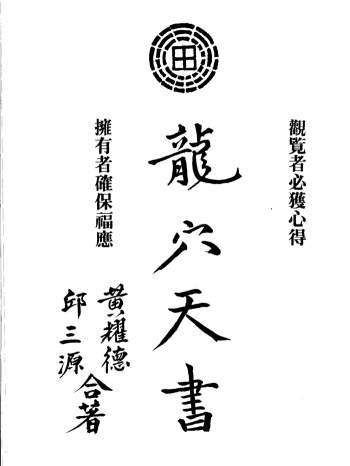 田
觀覽者必獲心得
龍穴天書
擁有者確保福應
黃耀德
邱三源
合著